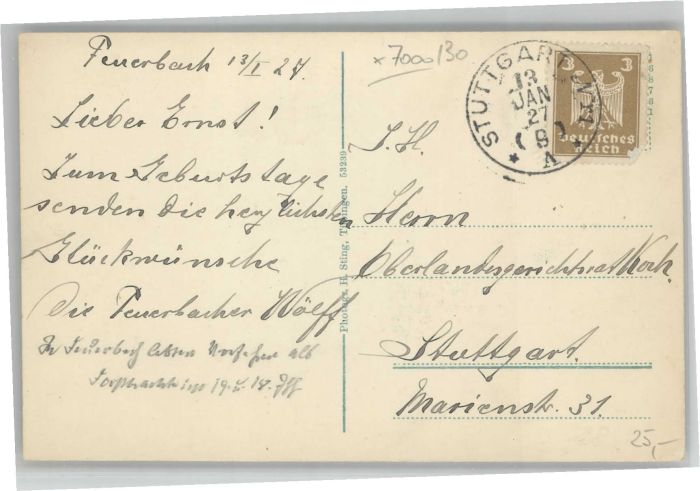 Feuerbach 13/I 27
Lieber Ernst!
Zum Geburtstage
senden die herzlichsten
Glückwünsche
Die Feuerbacher Wölff
In Feuerbach als
19. u.
Photogr. H. Sting, Tübingen. 53239
x7000/30
STUTTGART
13
JAN
27
( 9 )
* A *
3 3
Deutsches
Reich
S. H.
Herrn
Oberlandesgerichtsrat Koch.
Stuttgart.
Marienstr. 31.
25,-